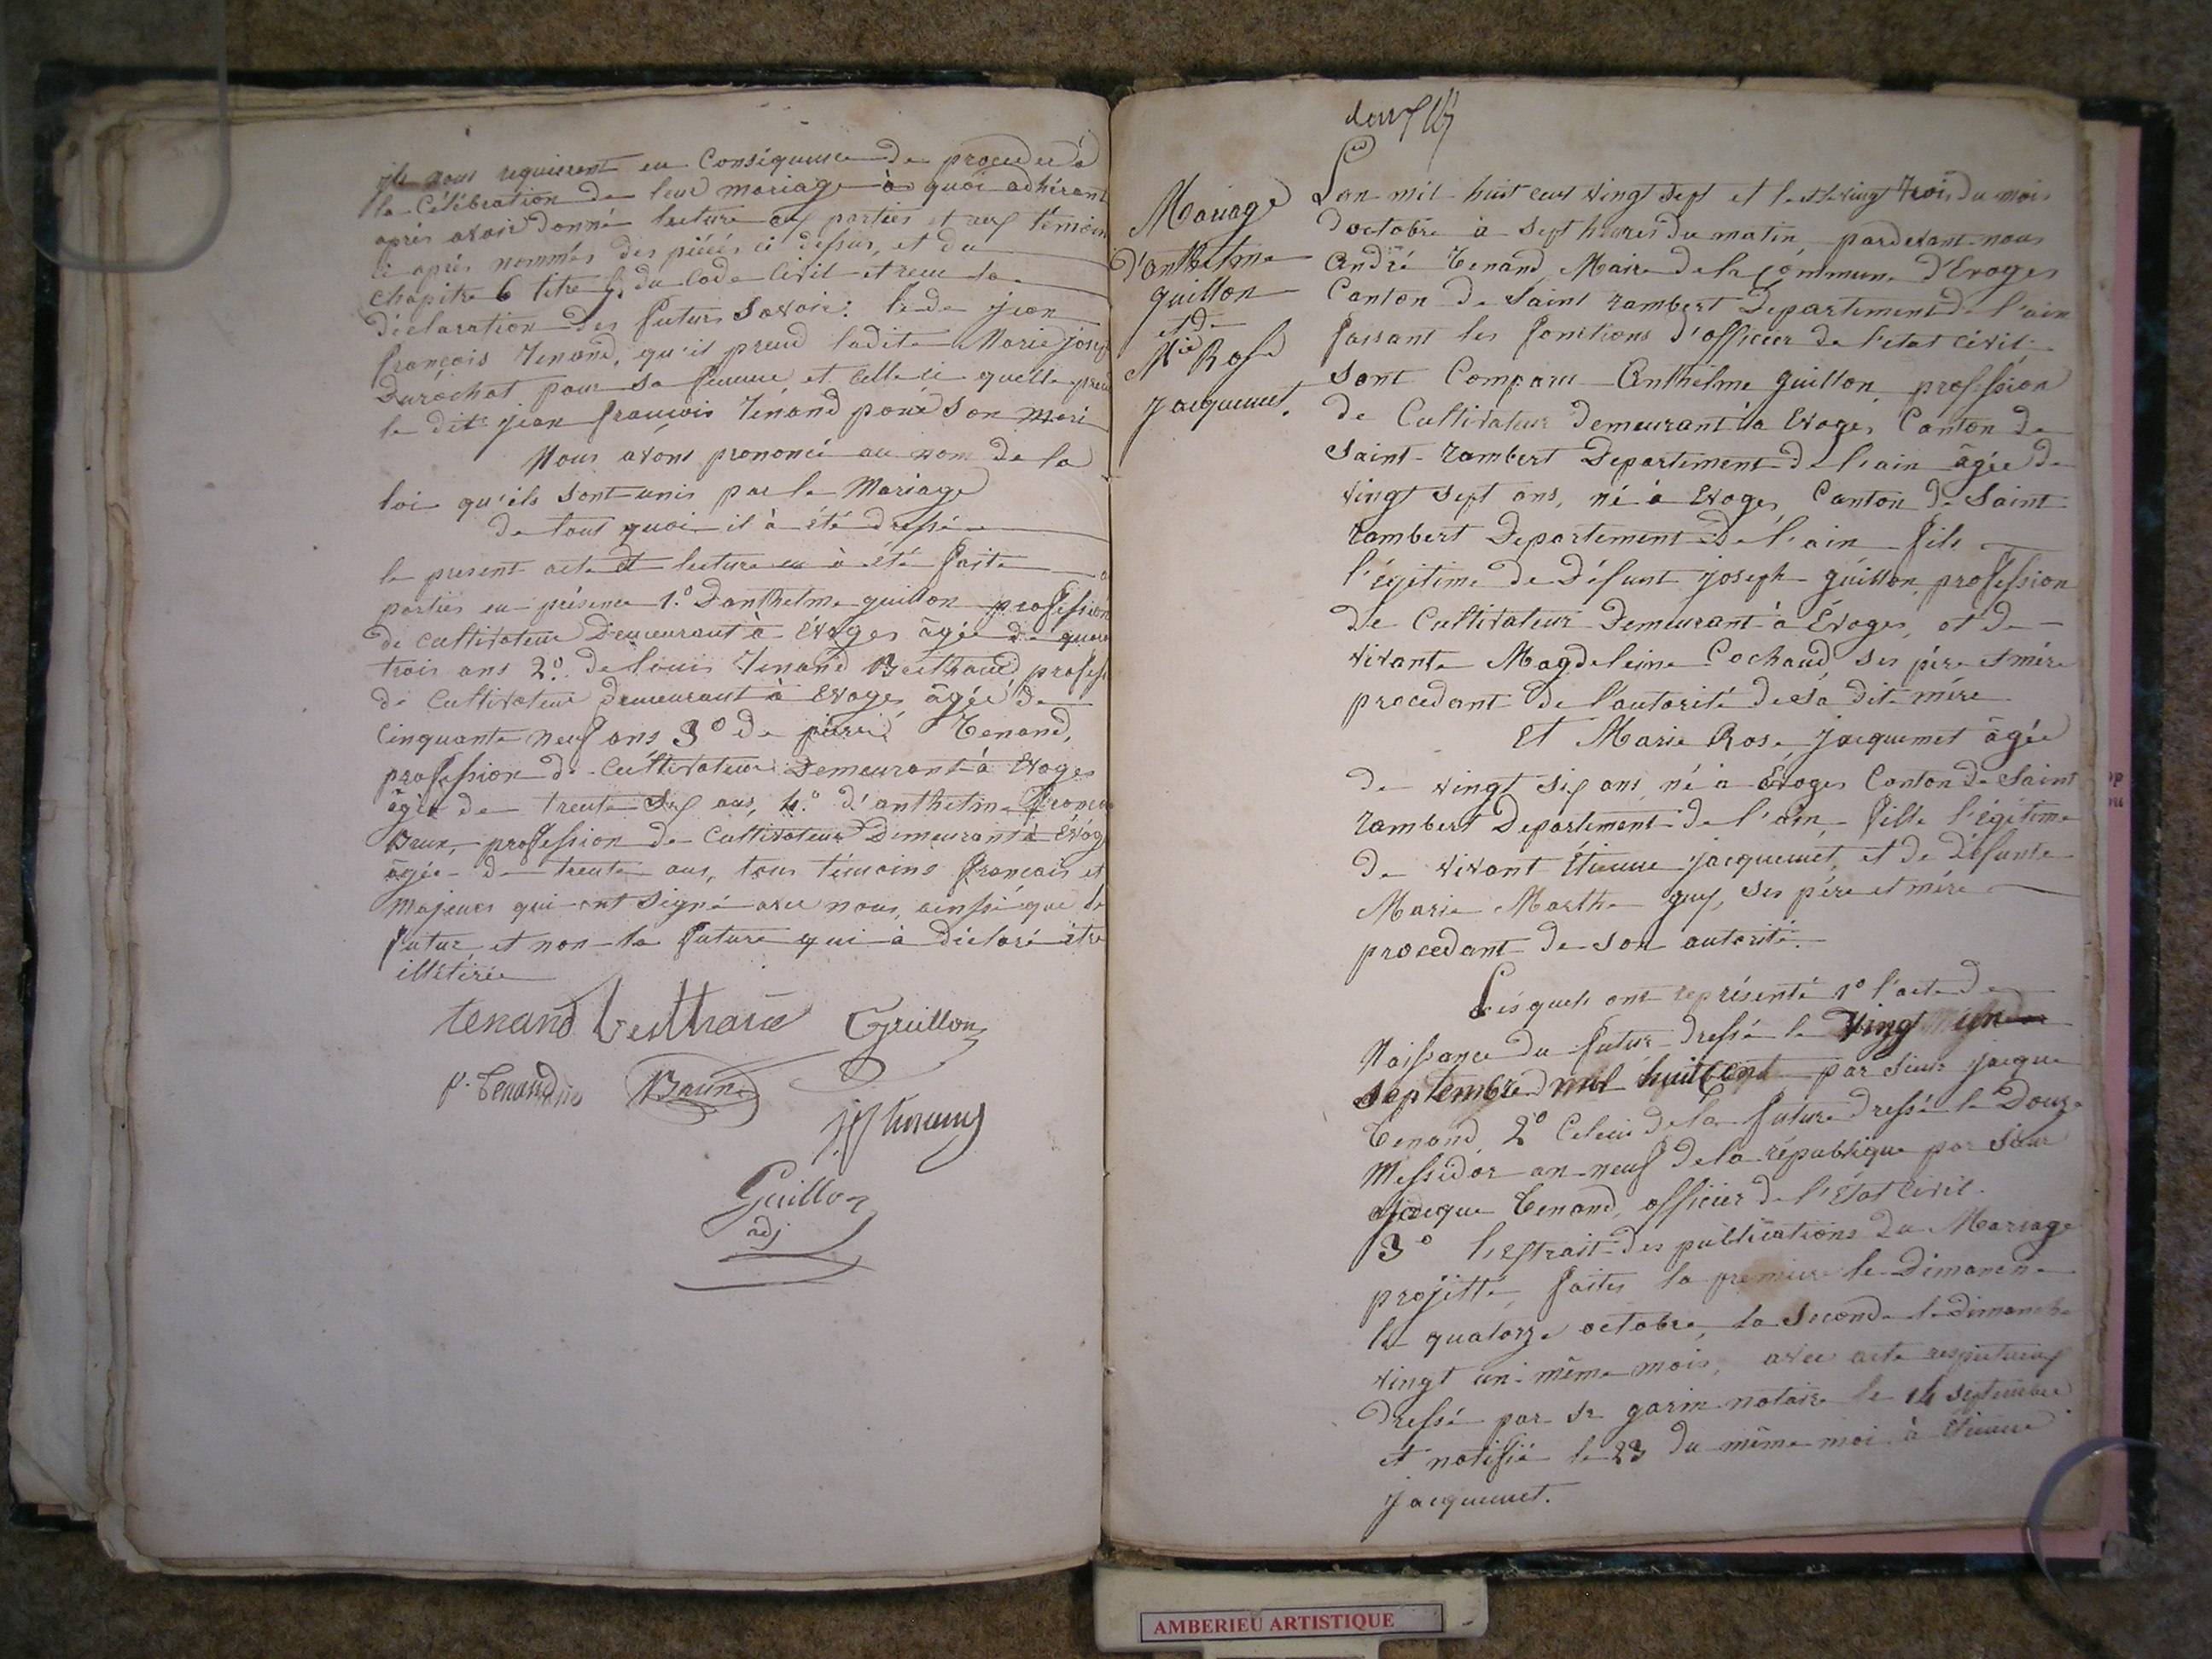 ils nous requierent en Conséquence de proceder à
la Célébration de leur mariage à quoi adhérant
après avoir donné lecture aux parties et aux témoin
ci après nommés des pièces ci dessus, et du
Chapitre 6 titre 5. du Code Civil et reçu la
déclaration des futurs Savoir: le de jean
françois Tenand, qu'il prend ladite Marie jose
Durochat pour sa femme et Celle ci quelle pren
le dit jean françois Tenand pour son Mari
Nous avons prononcé au nom de la
loi qu'ils sont unis par le Mariage
de tout quoi il à été dressé
le present acte et lecture en à été faite
parties en présence 1.º Danthelme guillon profession
de cultivateur Demeurant à Evoges âgée de quara
trois ans 2.º de louis Tenand Berthaud profess
de Cultivateur demeurant à Evoges âgée de
Cinquante neuf ans 3º de pierre Tenand,
profession de Cultivateur Demeurant à Evoges
âgée de trente six ans, 4.º d'anthelme françois
Brun, profession de Cultivateur Demeurant à Évog
âgée de trente ans, tous témoins français et
Majeurs qui ont signé avec nous, ainssi que le
futur et non la future qui à déclaré être
illétirée
tenand berthaud Guillon
p. Tenand Brun
jf tenand
Guillon
adj
Mariage
d'Anthelme
guillon
et de
Mie Rose
jacquemet.
Lan mil huit cent vingt sept et le vingt trois du mois
d'octobre à sept heures du matin pardevant nous
André Tenand Maire de la Commune d'Evoges
Canton de Saint rambert Departement de l'ain
faisant les fonctions d'officier de l'état civil
Sont Comparu Anthelme guillon, profession
de Cultivateur demeurant à Evoges, Canton de
Saint rambert Departement de l'ain âgée de
vingt sept ans, né à Evoges, Canton de Saint
rambert Departement de l'ain fils
l'égitime de Défunt joseph guillon, profession
de Cultivateur Demeurant à Évoges, et de
vivante Magdeleine Cochaud ses père et mère
procedant de l'autorité de sa dite mére
Et Marie Rose jacquemet âgée
de vingt six ans né à Évoges Canton de Saint
rambert Departement de l'ain, fille l'égitime
de vivant Étienne jacquemet, et de Défunte
Marie Marthe guy, ses pére et mére
procedant de son autorité.
Lesquels ont représenté 1º l'acte de
Naissance du futur dressé le vingt un
septembre mil huit cent par sieur jacque
Tenand 2º Celui de la future dressé le Douze
Messidor an neuf de la république par sieur
jacque Tenand, officier de l'État Civil.
3º l'extrait des publications du Mariage
projetté, faites la premiere le Dimanche
le quatorze octobre, la seconde le dimanche
vingt un même mois, avec acte respectueux
dressé par sr garin notaire le 14 septembre
et notifié le 23 du même moi à Étienne
jacquemet.
AMBERIEU ARTISTIQUE